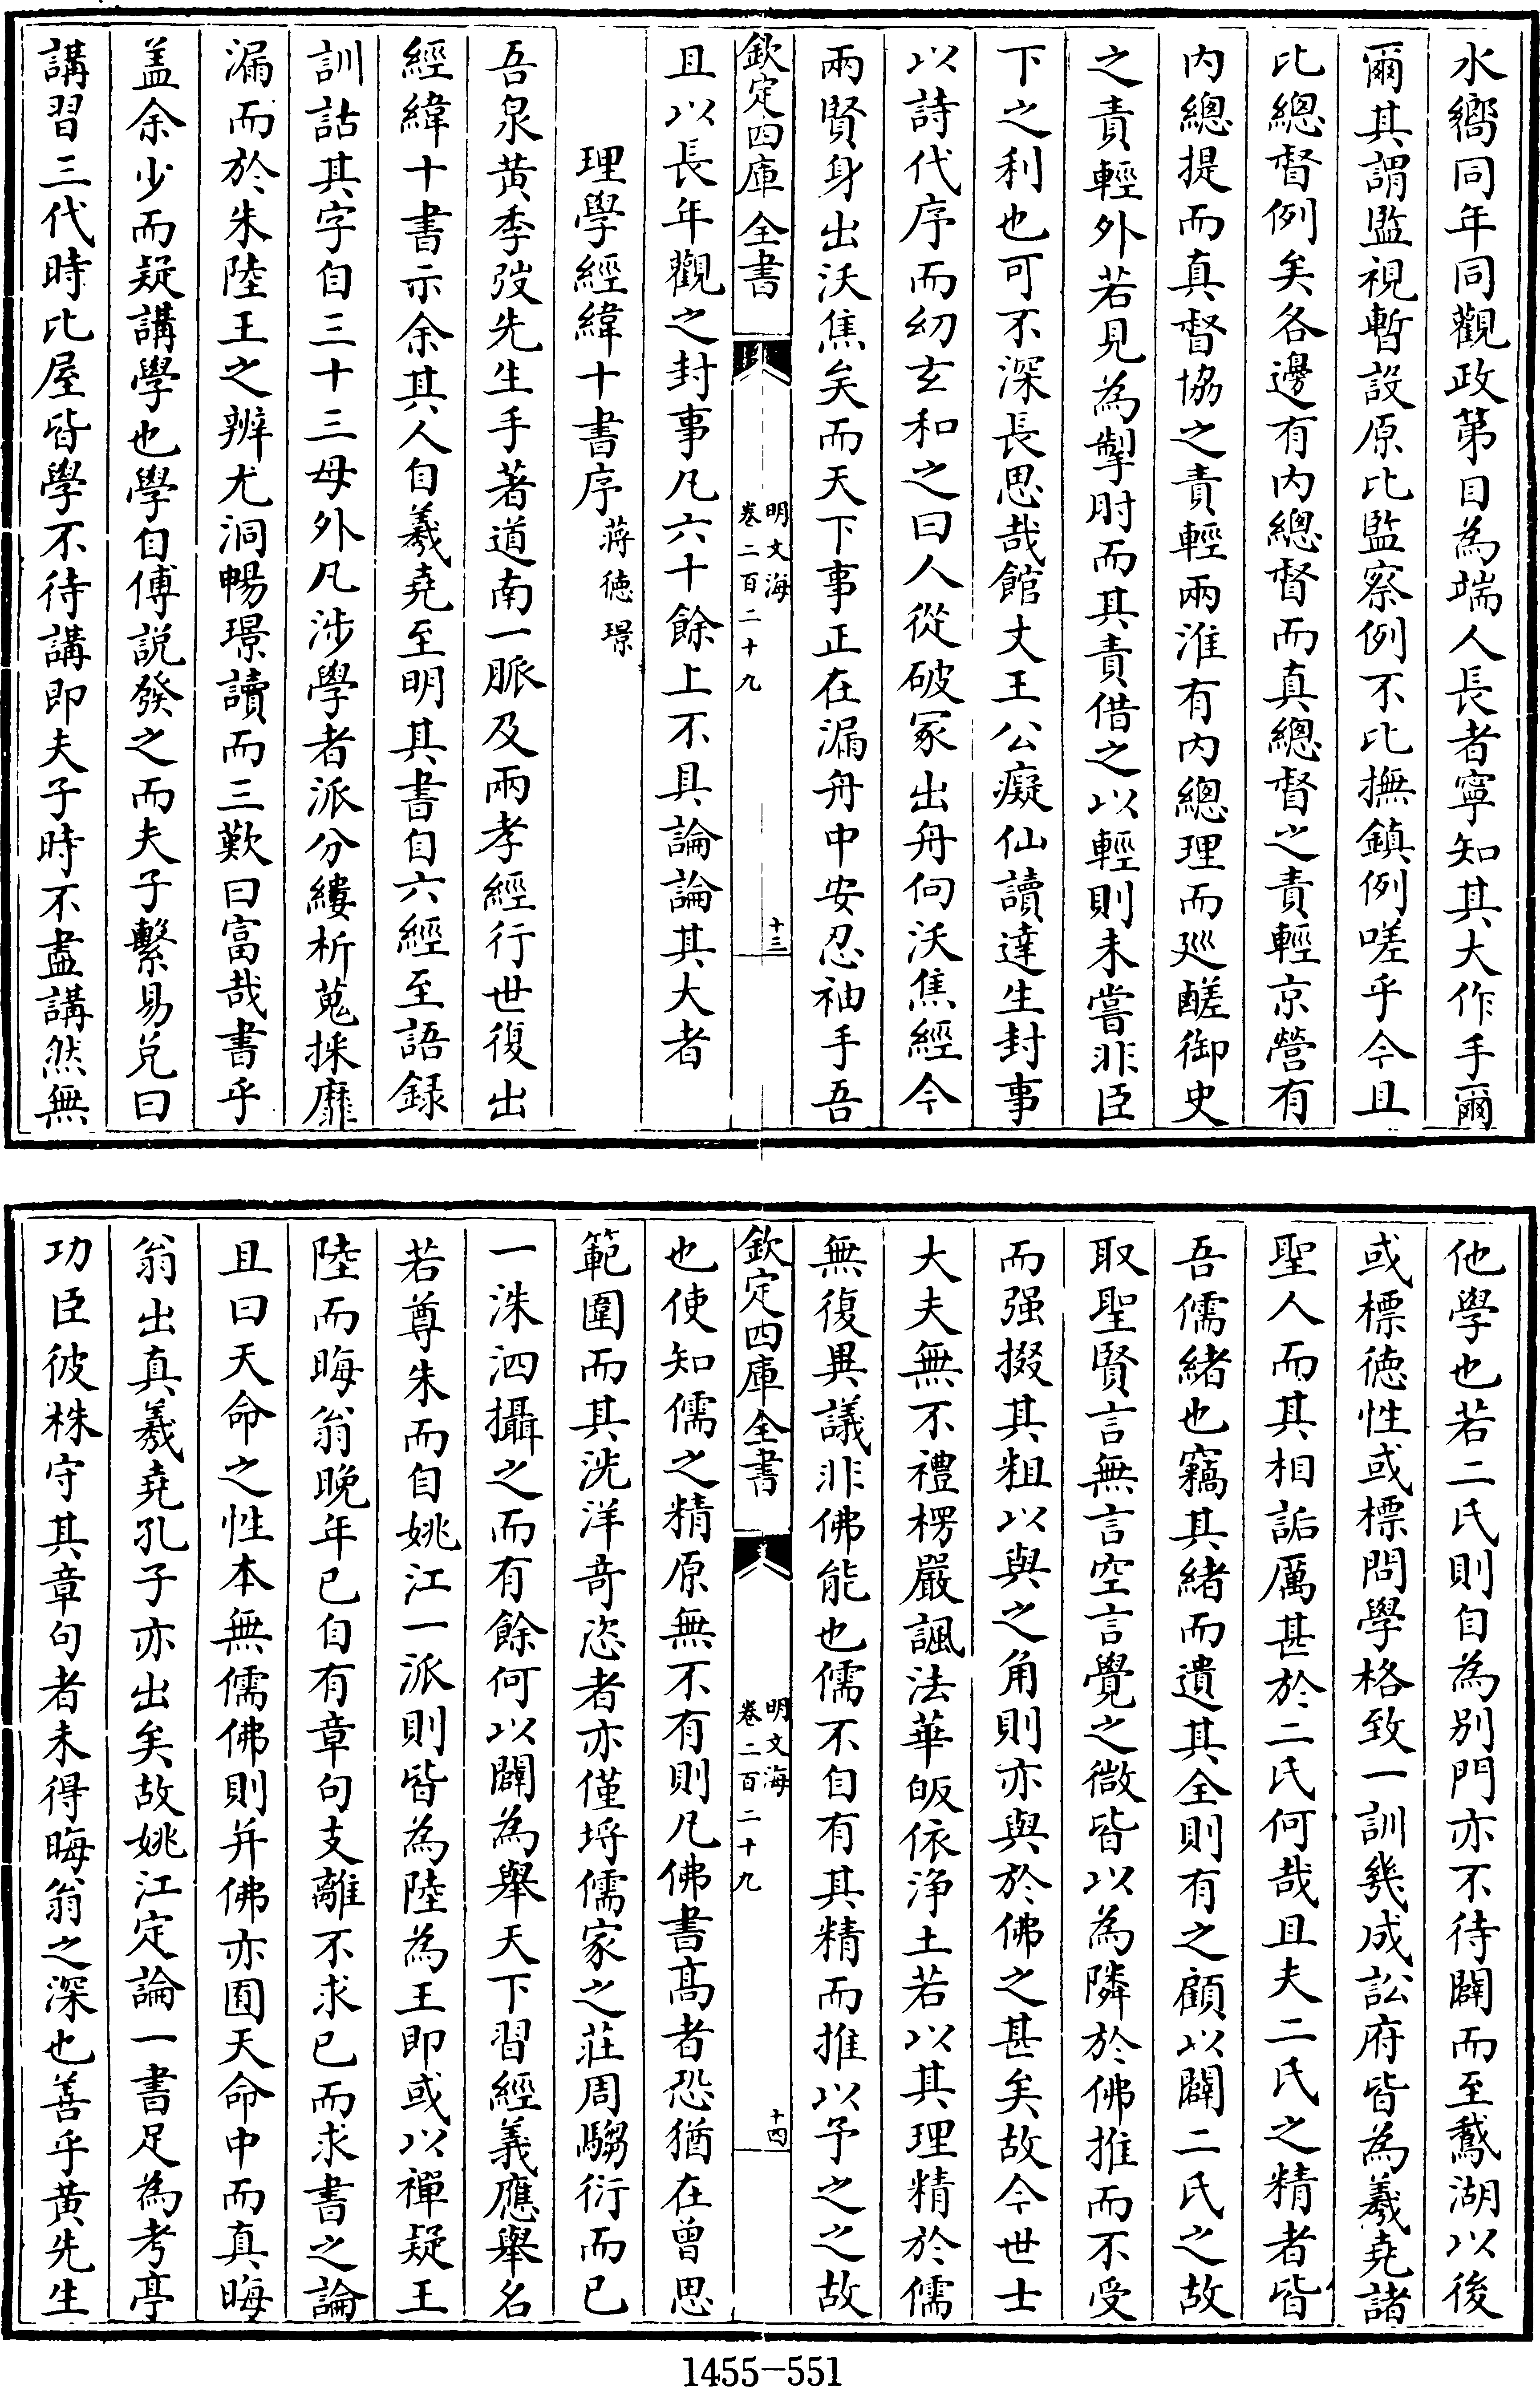 水嚮同年同觀政第目為端人長者寧知其大作手爾
爾其謂監視暫設原比監察例不比撫鎮例嗟乎今且
比總督例矣各邊有內總督而真總督之責輕京營有
內總提而真督協之責輕兩淮有內總理而廵鹺御史
之責輕外若見為掣肘而其責借之以輕則未嘗非臣
下之利也可不深長思哉館丈王公癡仙讀達生封事
以詩代序而幼玄和之曰人從破冢出舟向沃焦經今
兩賢身出沃焦矣而天下事正在漏舟中安忍袖手吾
欽定四庫全書
明文海
卷二百二十九
十三
且以長年觀之封事凡六十餘上不具論論其大者
理學經緯十書序 蔣徳璟
吾泉黄季弢先生手著道南一脈及兩孝經行世復出
經緯十書示余其人自羲堯至明其書自六經至語録
訓詁其字自三十三母外凡涉學者派分縷析蒐採靡
漏而於朱陸王之辨尤洞暢璟讀而三歎曰富哉書乎
盖余少而疑講學也學自傅説發之而夫子繫易兌曰
講習三代時比屋皆學不待講即夫子時不盡講然無
他學也若二氏則自為別門亦不待闢而至鵞湖以後
或標徳性或標問學格致一訓幾成訟府皆為羲堯諸
聖人而其相詬厲甚於二氏何哉且夫二氏之精者皆
吾儒緒也竊其緒而遺其全則有之顧以闢二氏之故
取聖賢言無言空言覺之微皆以為隣於佛推而不受
而强掇其粗以與之角則亦與於佛之甚矣故今世士
大夫無不禮楞嚴諷法華皈依浄土若以其理精於儒
無復異議非佛能也儒不自有其精而推以予之之故
欽定四庫全書
明文海
卷二百二十九
十四
也使知儒之精原無不有則凡佛書髙者恐猶在曾思
範圍而其洸洋竒恣者亦僅埒儒家之莊周騶衍而已
一洙泗攝之而有餘何以闢為舉天下習經義應舉名
若尊朱而自姚江一派則皆為陸為王即或以禪疑王
陸而晦翁晚年已自有章句支離不求已而求書之論
且曰天命之性本無儒佛則并佛亦囿天命中而真晦
翁出真羲堯孔子亦出矣故姚江定論一書足為考亭
功臣彼株守其章句者未得晦翁之深也善乎黄先生
1455-551